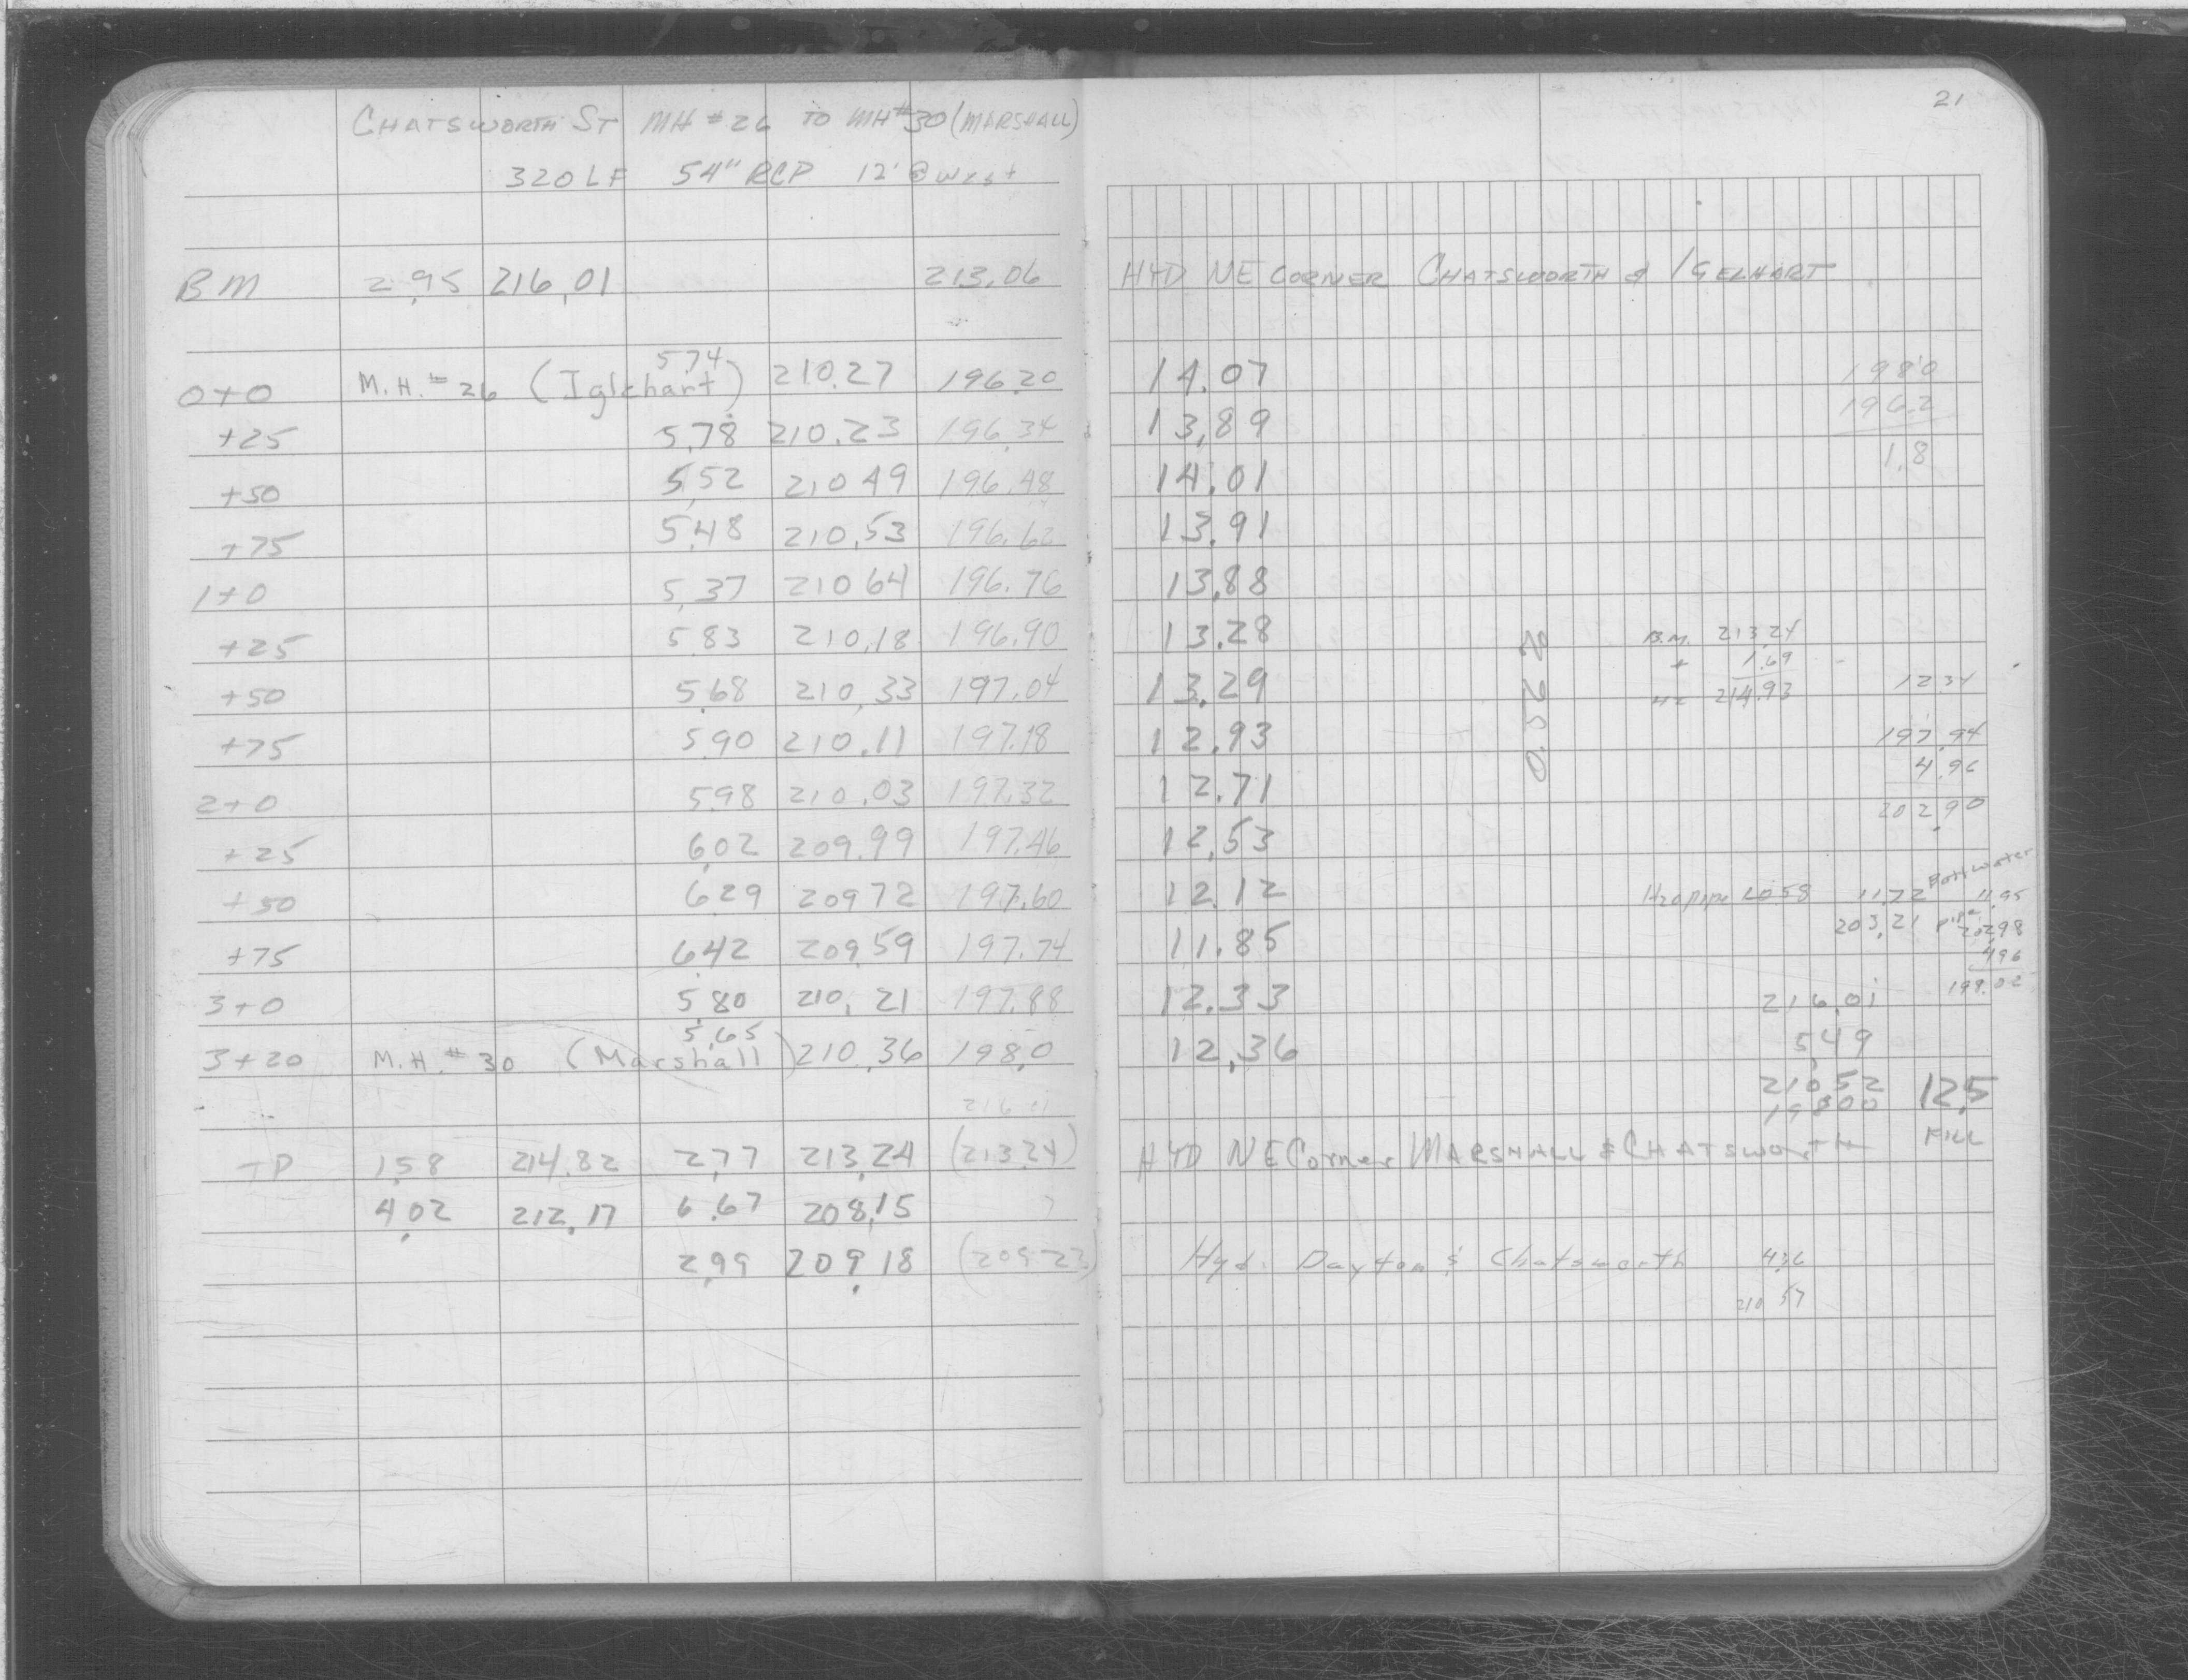 21
CHATSWORTH ST MH #26 TO MH #30 (MARSHALL)
320 LF 54" RCP 12' @ West
BM 2.95 216.01 213.06 HYD NE CORNER CHATSWORTH & IGELHART
5.74
0+0 M.H. # 26 (Iglehart) 210.27 196.20 14.07 198.0
+25 5.78 210.23 196.34 13.89 196.2
+50 5.52 210 49 196.48 14.01 1.8
+75 5.48 210.53 196.62 13.91
1+0 5.37 210 64 196.76 13.88
+25 5.83 210.18 196.90 13.28 B.M. 213.24
+ 1.69
+50 5.68 210.33 197.04 13.29 214.93 12.34
+75 5.90 210.11 197.18 12.93 197.94
4.96
2+0 5.98 210.03 197.32 12.71 202.90
+25 6.02 209.99 197.46 12.53
+50 6.29 209 72 197.60 12.12 H20 pipe 11.72 Bott water 11.95
+75 6.42 209.59 197.74 11.85 203.21 pipe 202.98
4.96
3+0 5.80 210.21 197.88 12.33 216.01 198.02
5.65
3+20 M.H. # 30 (Marshall) 210.36 198.0 12.36 5.49
216 01 210 52 12.5
198 00 FILL
TP 1.58 214.82 2.77 213.24 (213.24) HYD NE Corner MARSHALL & CHATSWORTH
4.02 212.17 6.67 208.15 ?
2.99 209.18 (209.23) Hyd. Dayton & Chatsworth 436
210 57